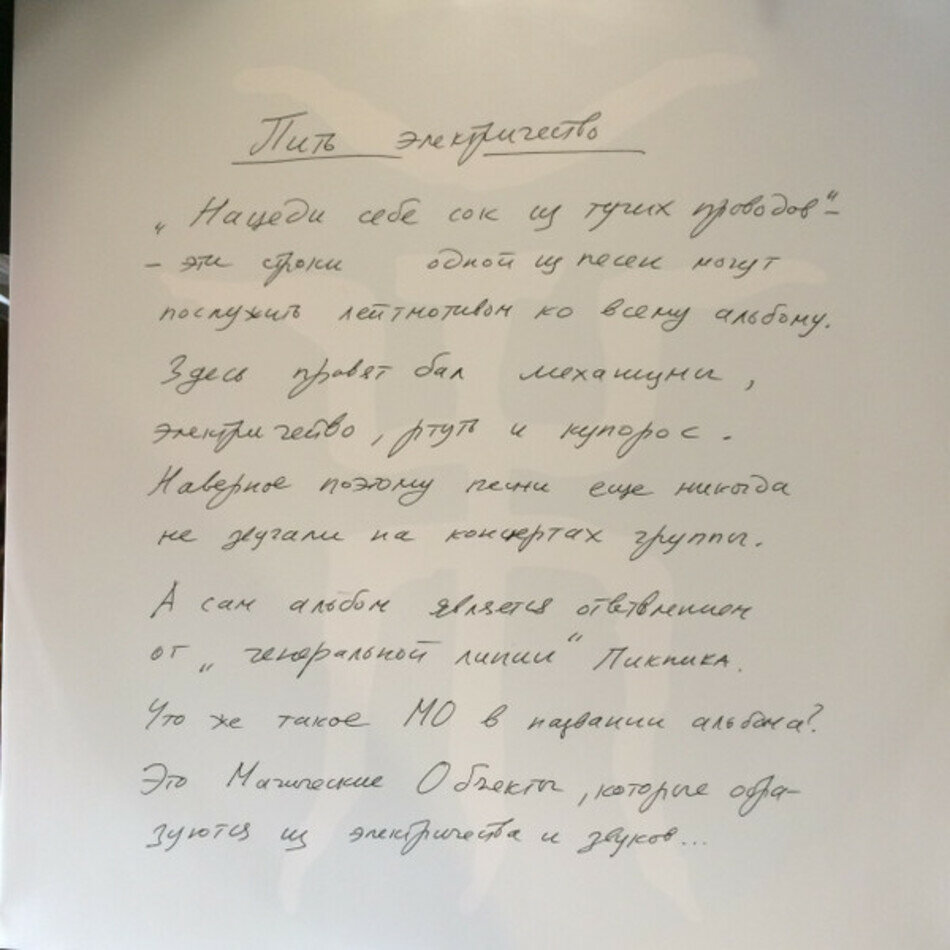 Пить электричество
„Нацеди себе сок из тугих проводов“ –
– эти строки одной из песен могут
послужить лейтмотивом ко всему альбому.
Здесь правят бал механизмы,
электричество, ртуть и купорос.
Наверное поэтому песни еще никогда
не звучали на концертах группы.
А сам альбом является ответвлением
от „генеральной линии“ Пикника.
Что же такое МО в названии альбома?
Это Магические Объекты, которые обра-
зуются из электричества и звуков...